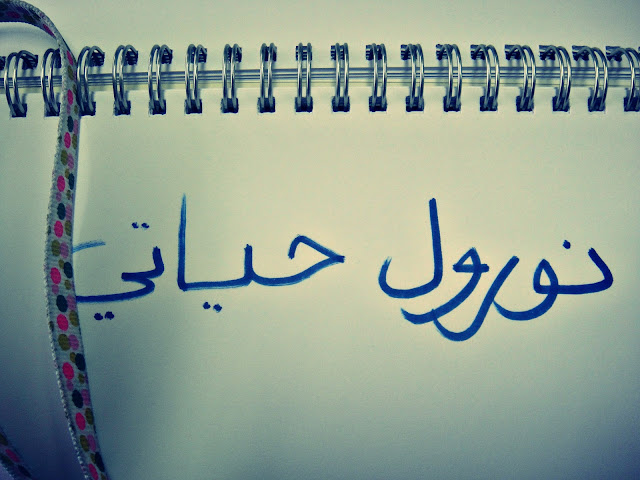 نورول حياتي